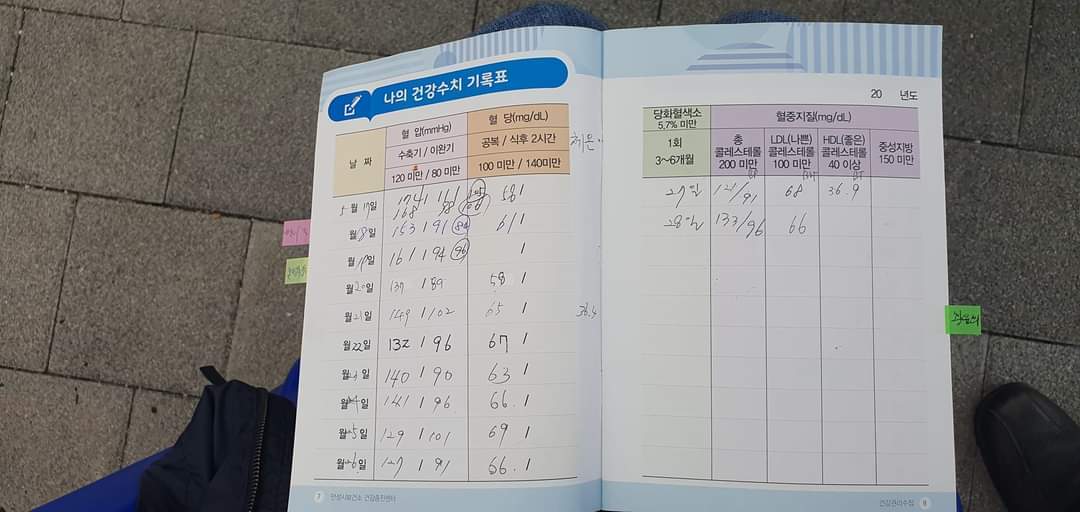 나의 건강수치 기록표
날 짜
혈 압(mmHg)
수축기 / 이완기
120 미만 / 80 미만
혈 당(mg/dL)
공복 / 식후 2시간
100 미만 / 140미만
5월 17일 174 / 161 58 /
168 / 98
월 18일 163 / 91 84 61 /
월 19일 161 / 94 96 /
월 20일 137 / 89 58 /
월 21일 149 / 102 65 / 36.4
월 22일 132 / 96 67 /
월 23일 140 / 90 63 /
월 24일 141 / 96 66. /
월 25일 129 / 101 69 /
월 26일 127 / 91 66. /
7 안성시보건소 건강증진센터
20 년도
당화혈색소
5.7% 미만
1회
3~6개월
혈중지질(mg/dL)
총
콜레스테롤
200 미만
LDL(나쁜)
콜레스테롤
100 미만
HDL(좋은)
콜레스테롤
40 이상
중성지방
150 미만
27일 121/91 68 36.9
28일 133/96 66
건강관리수첩 8